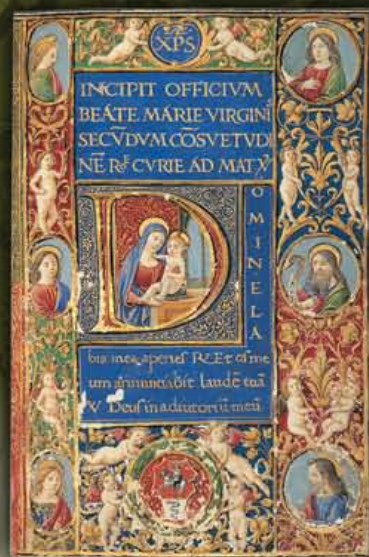 XPS
INCIPIT OFFICIVM
BEATE MARIE VIRGINI
SECVDVM COSVETVDI
NĒ Rᴱ CVRIE AD MATV
D
OMINE LA
bia mea aperies R Et os me
um annunciabit laudē tuā
V Deus in adiutoriū meū